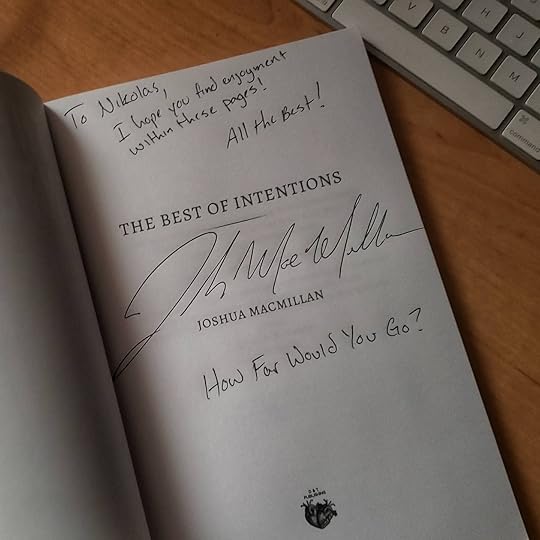 To Nikolas,
I hope you find enjoyment
within these pages!
All the Best!
THE BEST OF INTENTIONS
JOSHUA MACMILLAN
How Far Would You Go?
D & T
PUBLISHING
H
J
K
V
B
N
M
⌘
command